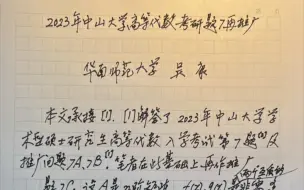 2023年中山大学高等代数考研题7再推广
华南师范大学 吴康
本文承接[1],[1]解答了2023年中山大学学
术型硕士研究生高等代数入学考试第7题[2]及
推广问题7A,7B[1],笔者在此基础上再作推广